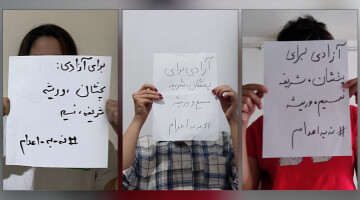 برای آزادی:
پخشان، وریشه
شریفه، نسیم
#نه_به_اعدام
آزادی برای
پخشان، شریفه
نسیم و وریشه
#نه به اعدام
آزادی برای
پخشان، شریفه
نسیم، وریشه
#نه به اعدام